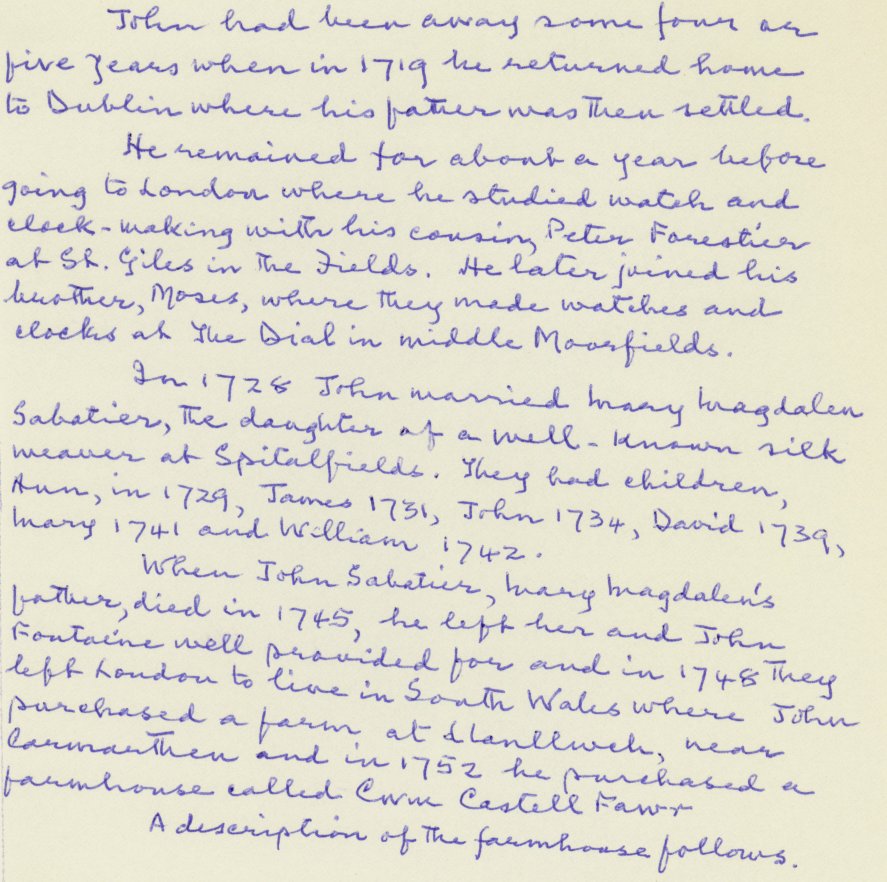 John had been away some four or
five years when in 1719 he returned home
to Dublin where his father was then settled.
He remained for about a year before
going to London where he studied watch and
clock-making with his cousin, Peter Forestier
at St. Giles in the Fields. He later joined his
brother, Moses, where they made watches and
clocks at The Dial in middle Moorfields.
In 1728 John married Mary Magdalen
Sabatier, the daughter of a well-known silk
weaver at Spitalfields. They had children,
Ann, in 1729, James 1731, John 1734, David 1739,
Mary 1741 and William 1742.
When John Sabatier, Mary Magdalen's
father, died in 1745, he left her and John
Fontaine well provided for and in 1748 they
left London to live in South Wales where John
purchased a farm at Llanllwch, near
Carmarthen and in 1752 he purchased a
farmhouse called Cwm Castell Fawr
A description of the farmhouse follows.